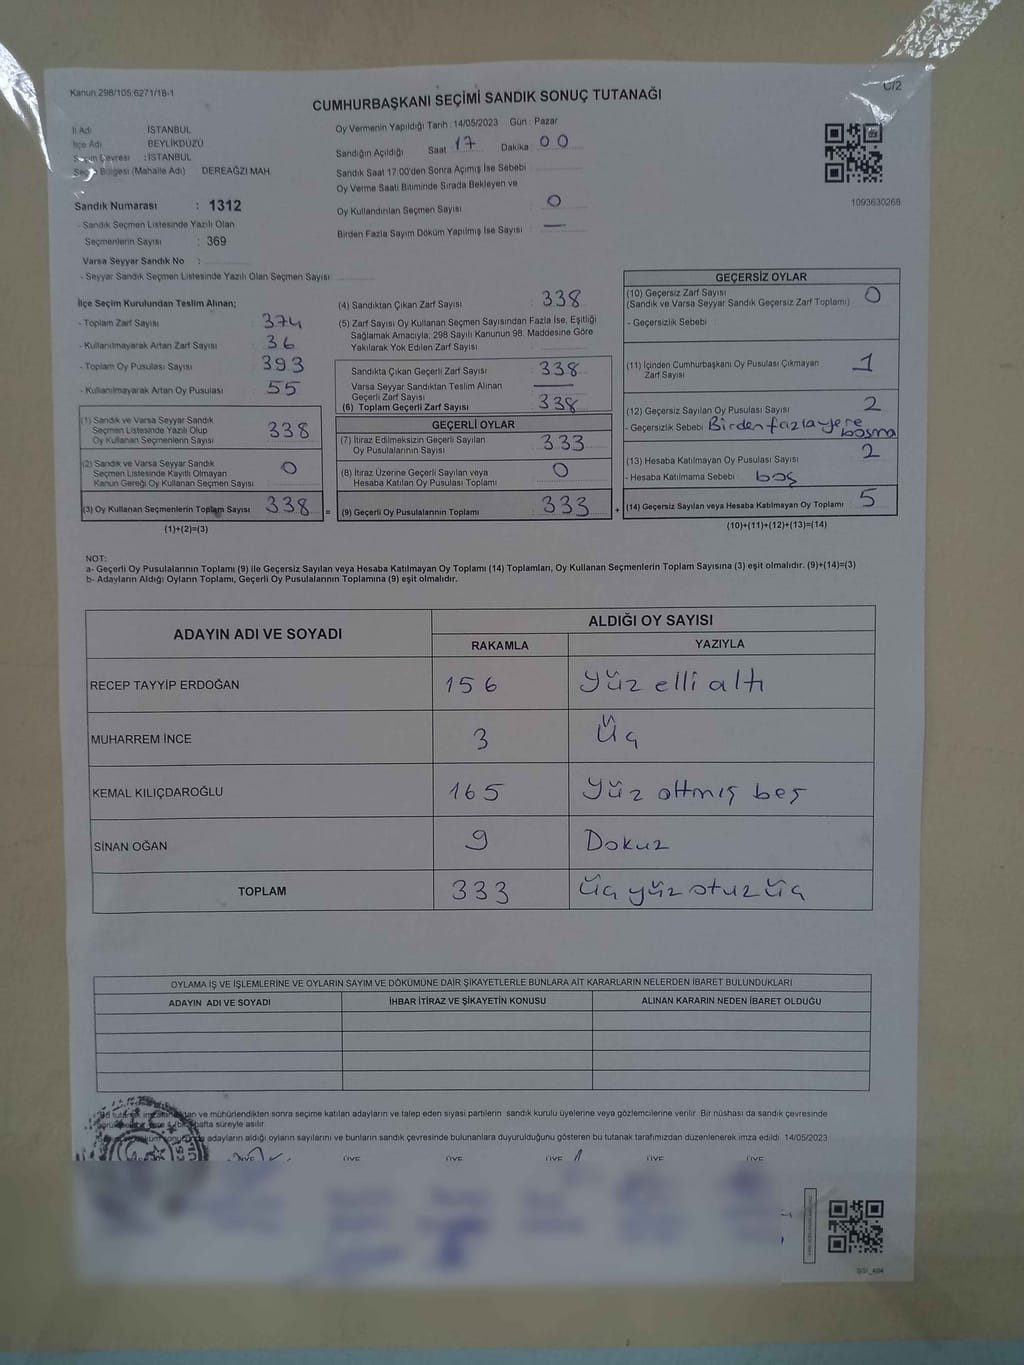 Kanun 298/105.6271/1B-1
C/2
CUMHURBAŞKANI SEÇİMİ SANDIK SONUÇ TUTANAĞI
İl Adı : İSTANBUL
İlçe Adı BEYLİKDÜZÜ
Seçim Çevresi : İSTANBUL
Seçim Bölgesi (Mahalle Adı) DEREAĞZI MAH.
Sandık Numarası : 1312
- Sandık Seçmen Listesinde Yazılı Olan
Seçmenlerin Sayısı : 369
Varsa Seyyar Sandık No :
- Seyyar Sandık Seçmen Listesinde Yazılı Olan Seçmen Sayısı:
Oy Vermenin Yapıldığı Tarih : 14/05/2023 Gün : Pazar
Sandığın Açıldığı Saat 17 Dakika 00
Sandık Saat 17:00'den Sonra Açımış İse Sebebi
Oy Verme Saati Bitiminde Sırada Bekleyen ve
Oy Kullandırılan Seçmen Sayısı 0
Birden Fazla Sayım Döküm Yapılmış İse Sayısı —
1093630268
İlçe Seçim Kurulundan Teslim Alınan;
- Toplam Zarf Sayısı 374
- Kullanılmayarak Artan Zarf Sayısı 36
- Toplam Oy Pusulası Sayısı 393
- Kullanılmayarak Artan Oy Pusulası 55
(1) Sandık ve Varsa Seyyar Sandık
Seçmen Listesinde Yazılı Olup
Oy Kullanan Seçmenlerin Sayısı 338
(2) Sandık ve Varsa Seyyar Sandık
Seçmen Listesinde Kayıtlı Olmayan
Kanun Gereği Oy Kullanan Seçmen Sayısı 0
(3) Oy Kullanan Seçmenlerin Toplam Sayısı 338
(1)+(2)=(3)
(4) Sandıktan Çıkan Zarf Sayısı 338
(5) Zarf Sayısı Oy Kullanan Seçmen Sayısından Fazla İse, Eşitliği
Sağlamak Amacıyla; 298 Sayılı Kanunun 98. Maddesine Göre
Yakılarak Yok Edilen Zarf Sayısı
Sandıkta Çıkan Geçerli Zarf Sayısı 338
Varsa Seyyar Sandıktan Teslim Alınan
Geçerli Zarf Sayısı —
(6) Toplam Geçerli Zarf Sayısı 338
GEÇERLİ OYLAR
(7) İtiraz Edilmeksizin Geçerli Sayılan
Oy Pusulalarının Sayısı 333
(8) İtiraz Üzerine Geçerli Sayılan veya
Hesaba Katılan Oy Pusulası Toplamı 0
= (9) Geçerli Oy Pusulalarının Toplamı 333
GEÇERSİZ OYLAR
(10) Geçersiz Zarf Sayısı
(Sandık ve Varsa Seyyar Sandık Geçersiz Zarf Toplamı) 0
- Geçersizlik Sebebi :
(11) İçinden Cumhurbaşkanı Oy Pusulası Çıkmayan
Zarf Sayısı 1
(12) Geçersiz Sayılan Oy Pusulası Sayısı 2
- Geçersizlik Sebebi Birden fazla yere
basma
(13) Hesaba Katılmayan Oy Pusulası Sayısı 2
- Hesaba Katılmama Sebebi : boş
+ (14) Geçersiz Sayılan veya Hesaba Katılmayan Oy Toplamı 5
(10)+(11)+(12)+(13)=(14)
NOT:
a- Geçerli Oy Pusulalarının Toplamı (9) ile Geçersiz Sayılan veya Hesaba Katılmayan Oy Toplamı (14) Toplamları, Oy Kullanan Seçmenlerin Toplam Sayısına (3) eşit olmalıdır. (9)+(14)=(3)
b- Adayların Aldığı Oyların Toplamı, Geçerli Oy Pusulalarının Toplamına (9) eşit olmalıdır.
ADAYIN ADI VE SOYADI ALDIĞI OY SAYISI
RAKAMLA YAZIYLA
RECEP TAYYİP ERDOĞAN 156 Yüz elli altı
MUHARREM İNCE 3 Üç
KEMAL KILIÇDAROĞLU 165 Yüz altmış beş
SİNAN OĞAN 9 Dokuz
TOPLAM 333 Üç yüz otuz üç
OYLAMA İŞ VE İŞLEMLERİNE VE OYLARIN SAYIM VE DÖKÜMÜNE DAİR ŞİKAYETLERLE BUNLARA AİT KARARLARIN NELERDEN İBARET BULUNDUKLARI
ADAYIN ADI VE SOYADI İHBAR İTİRAZ VE ŞİKAYETİN KONUSU ALINAN KARARIN NEDEN İBARET OLDUĞU
ve mühürlendikten sonra seçime katılan adayların ve talep eden siyasi partilerin sandık kurulu üyelerine veya gözlemcilerine verilir. Bir nüshası da sandık çevresinde
hafta süreyle asılır.
adayların aldığı oyların sayılarını ve bunların sandık çevresinde bulunanlara duyurulduğunu gösteren bu tutanak tarafımızdan düzenlenerek imza edildi. 14/05/2023
ÜYE ÜYE ÜYE ÜYE ÜYE ÜYE